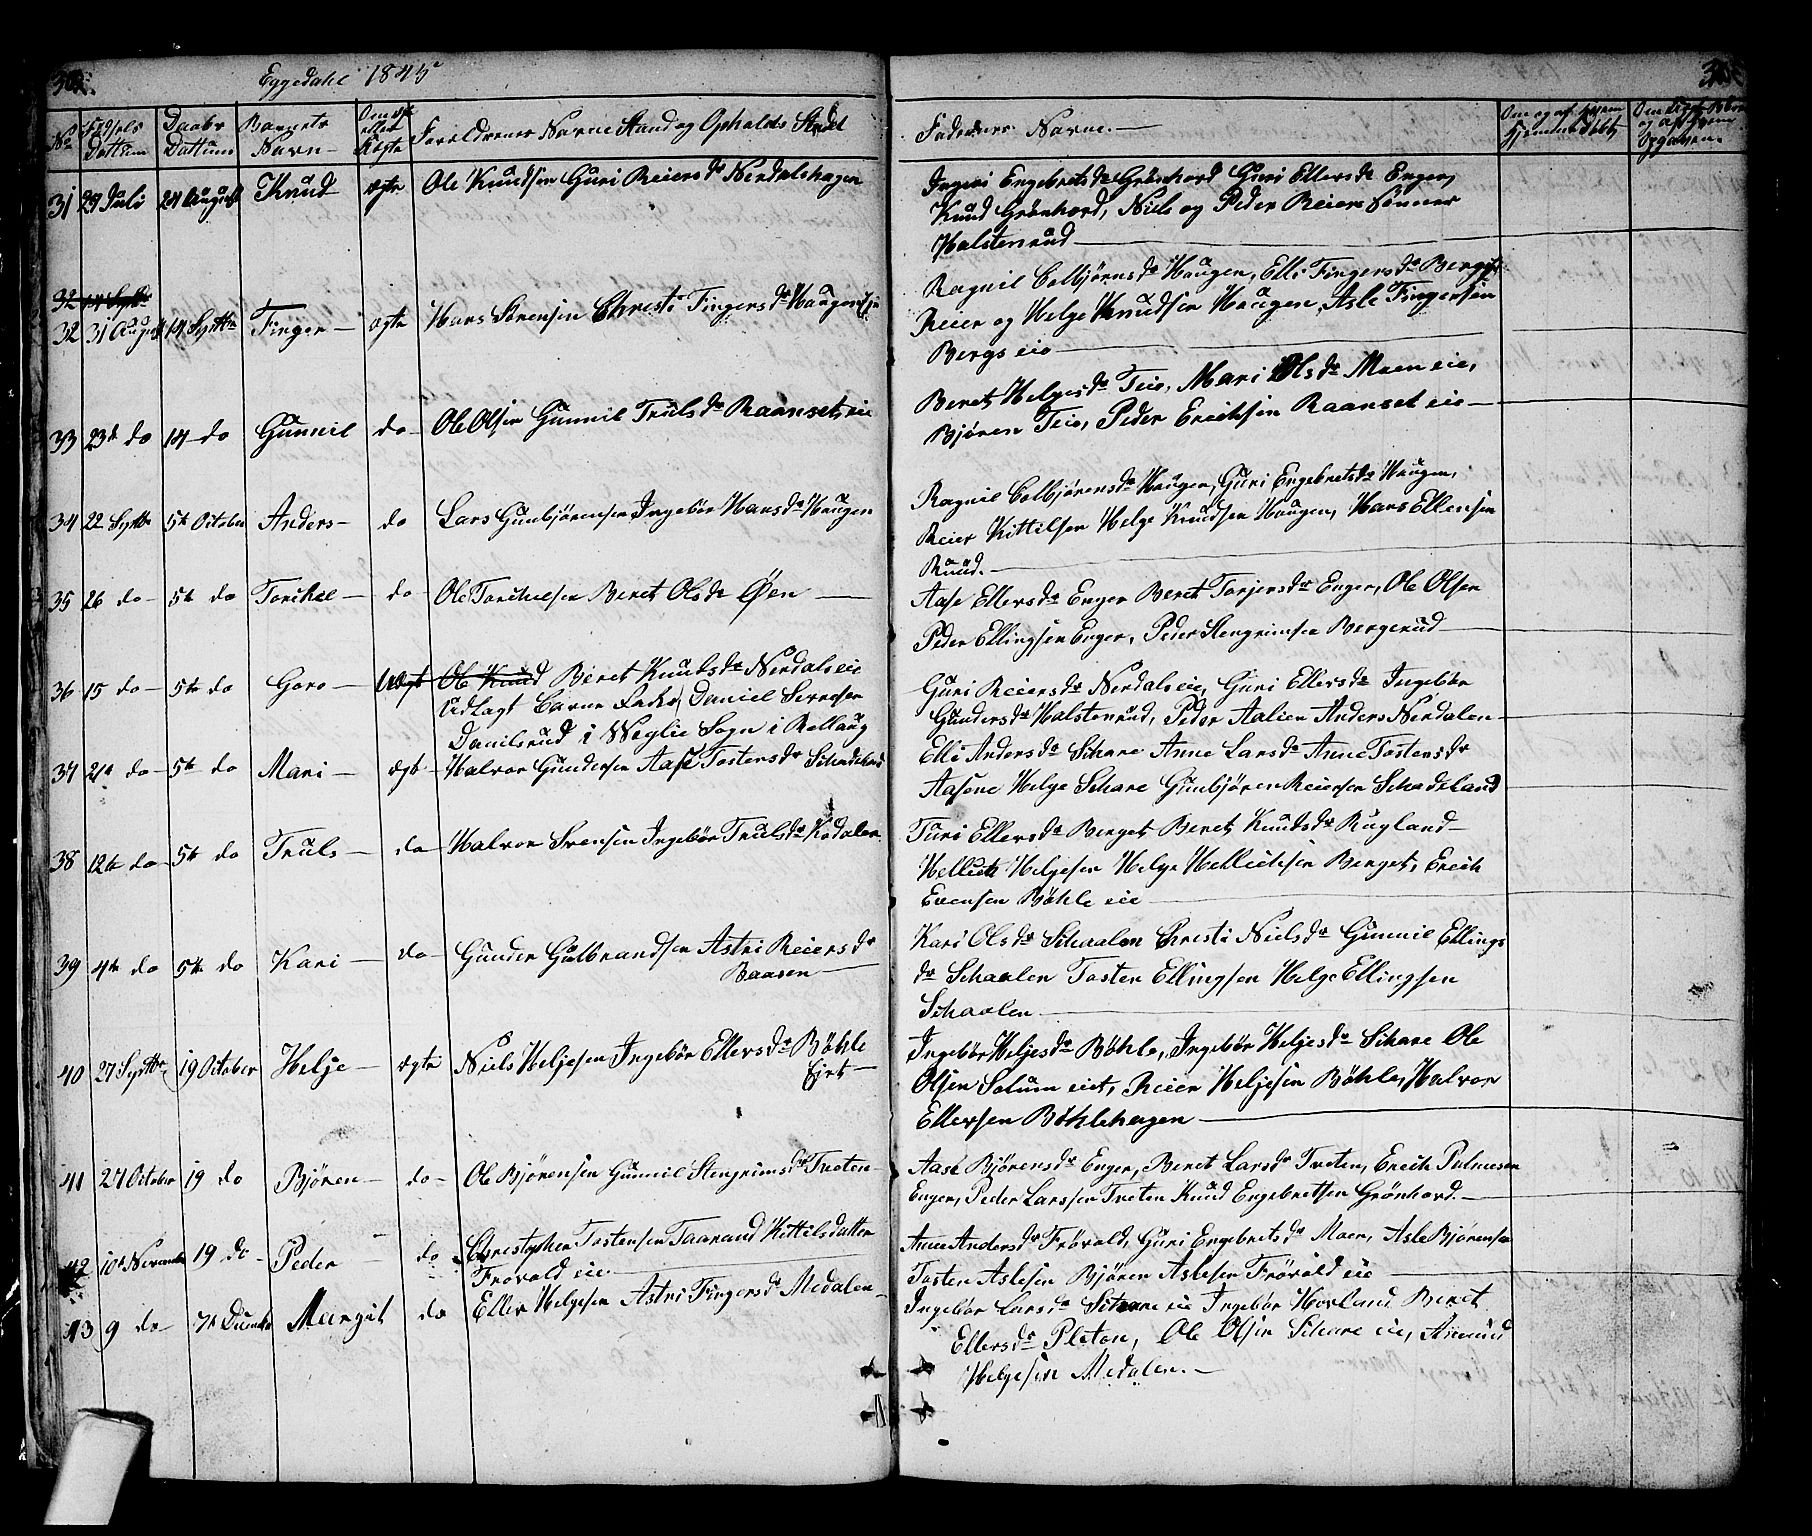 Eggedahl 1845
No Fødsels Dattum
Daabs Dattum
Barnets Navn
Om ægte eller Uægte
Foreldrenes Navne Stand og Opholds Sted
Faddernes Navne.
Om og af hvem Hjemmedøbt
31 29 Juli 24 August Knud ægte Ole Knudsen Guri Reiersdr Nerdalshagen
Ingeri Engebretsdr Grönhord Guri Ellersdr Enger,
Knud Grönhord, Niels og Peder Reiers Sønner
Halstenrud
32 14 Sptbr
32 31 August 14 Septbr Finger ægte Hans Sørensen Christi Fingersdr Haugen
Ragnil Colbjørnsdr Haugen, Elli Fingersdr Bergs
Reier og Helge Knudsen Haugen, Asle Fingersen
Bergs eie
33 23de do 14 do Gunnil do Ole Olsen Gunnil Trulsdr Raanset eie
Beret Helgesdr Teio, Mari Olsdr Moen eie,
Bjøren Teio, Peder Erichsen Raanset eie
34 22 Septbr 5te October Anders do Lars Gunbjørensen Ingebør Hansdr Haugen
Ragnil Colbjørensdr Haugen, Guri Engebretsdr Haugen,
Reier Kittilsen Helge Knudsen Haugen, Hans Ellensen
Ruud.
35 26 do 5te do Torchel do Ole Torchelsen Beret Olsdr Øen
Aase Ellersdr Enger Beret Torjersdr Enger, Ole Olsen
Peder Ellingsen Enger, Peder Stengrimsen Bergerud
36 15 do 5te do Goro Uægt Ole Knud Beret Knudsdr Nerdals eie
Udlagt Barne Fader, Daniel
Danilsrud i Weglie Sogn i Rollaug
Guri Reiersdr Nerdals eie, Guri Ellersdr Ingebør
Gundersdr Halstenrud, Peder Aalien Anders Nerdalen
37 21de do 5te do Mari ægt Halvor Gundersen Aase Tostensdr Schadeland
Elli Andersdr Schare Anne Larsdr Anne Tostensdr
Aasene Helge Schare Gunbjøren Reiersen Schadeland
38 12te do 5te do Truls do Halvor Svensen Ingebør Trulsdr Kodalen
Turi Ellersdr Berget Beret Knudsdr Rugland
Hellich Helgesen Helge Hellichsen Berget, Erich
Evensen Bøhle eie
39 4de do 5te do Kari do Gunder Gulbrandsen Astri Reiersdr
Baasen
Kari Olsdr Schaalen Christi Nielsdr Gunnil Ellings
dr Schaalen Tosten Ellingsen Helge Ellingsen
Schaalen
40 27 Septbr 19 October Helje ægte Niels Heljesen Ingebør Ellersdr Bøhle
Eiet
Ingebør Heljesdr Bøhle, Ingebør Heljesdr Schare Ole
Olsen Solum eiet, Reier Heljesen Bøhle, Halvor
Ellersen Bøhlehagen
41 27 October 19 do Bjøren do Ole Bjørensen Gunnil Stengrimsdr Tveten
Aase Bjørensdr Enger, Beret Larsdr Tveten, Erich
Enger, Peder Larsen Tveten Knud Engebretsen Grönhord.
42 10de November 19 do Peder do Christopher Tostensen Taarand Kittilsdatter
Frøvold eie
Anne Andersdr Frøvold, Guri Engebretsdr Moen, Asle Bjørensen
Tosten Aslesen Bjøren Aslesen Frøvold eie
43 9 do 7de December Margit do Eller Helgesen Astri Fingersdr Medalen
Ingebør Larsdr Schare eie Ingebør Hovland Beret
Ellersdr Pleton, Ole Olsen Schare eie, Amund
Helgesen Medalen.